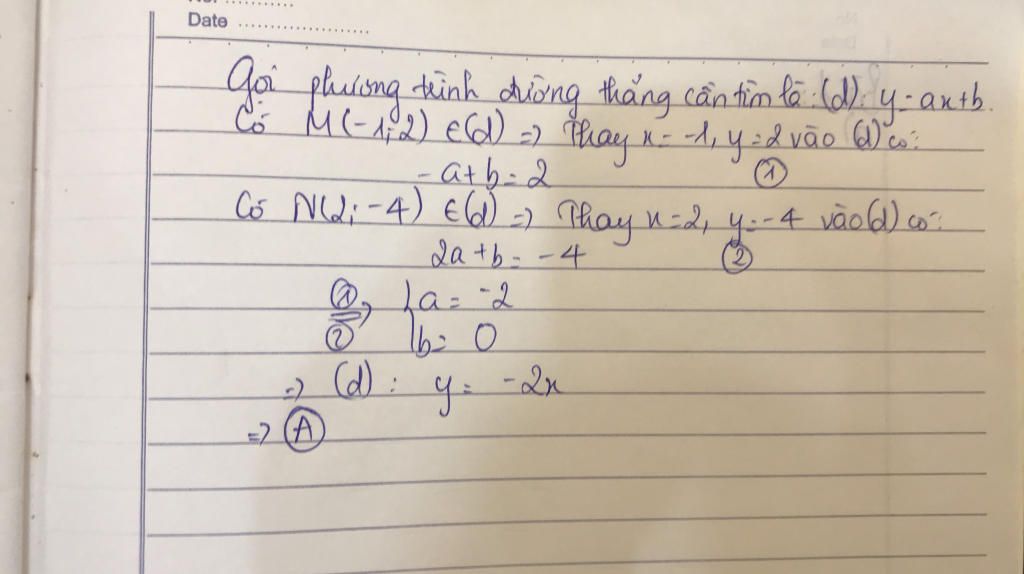 Date ........................
Gọi phương trình đường thẳng cần tìm là: (d): y = ax+b.
Có M(-1;2) ∈(d) => Thay x = -1, y = 2 vào (d) có:
-a+b = 2 ①
Có N(2;-4) ∈(d) => Thay x = 2, y = -4 vào (d) có:
2a+b = -4 ②
① a = -2
② => { b = 0
=> (d): y = -2x
=> Ⓐ